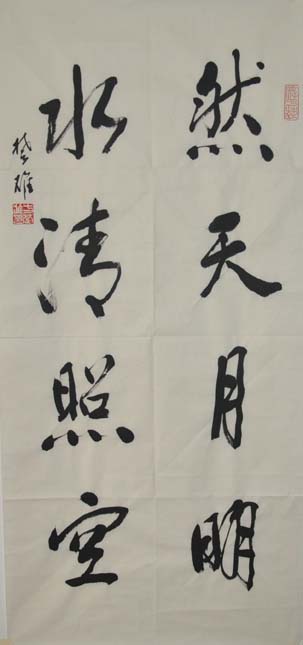 然天月明
水清照空
楚雄